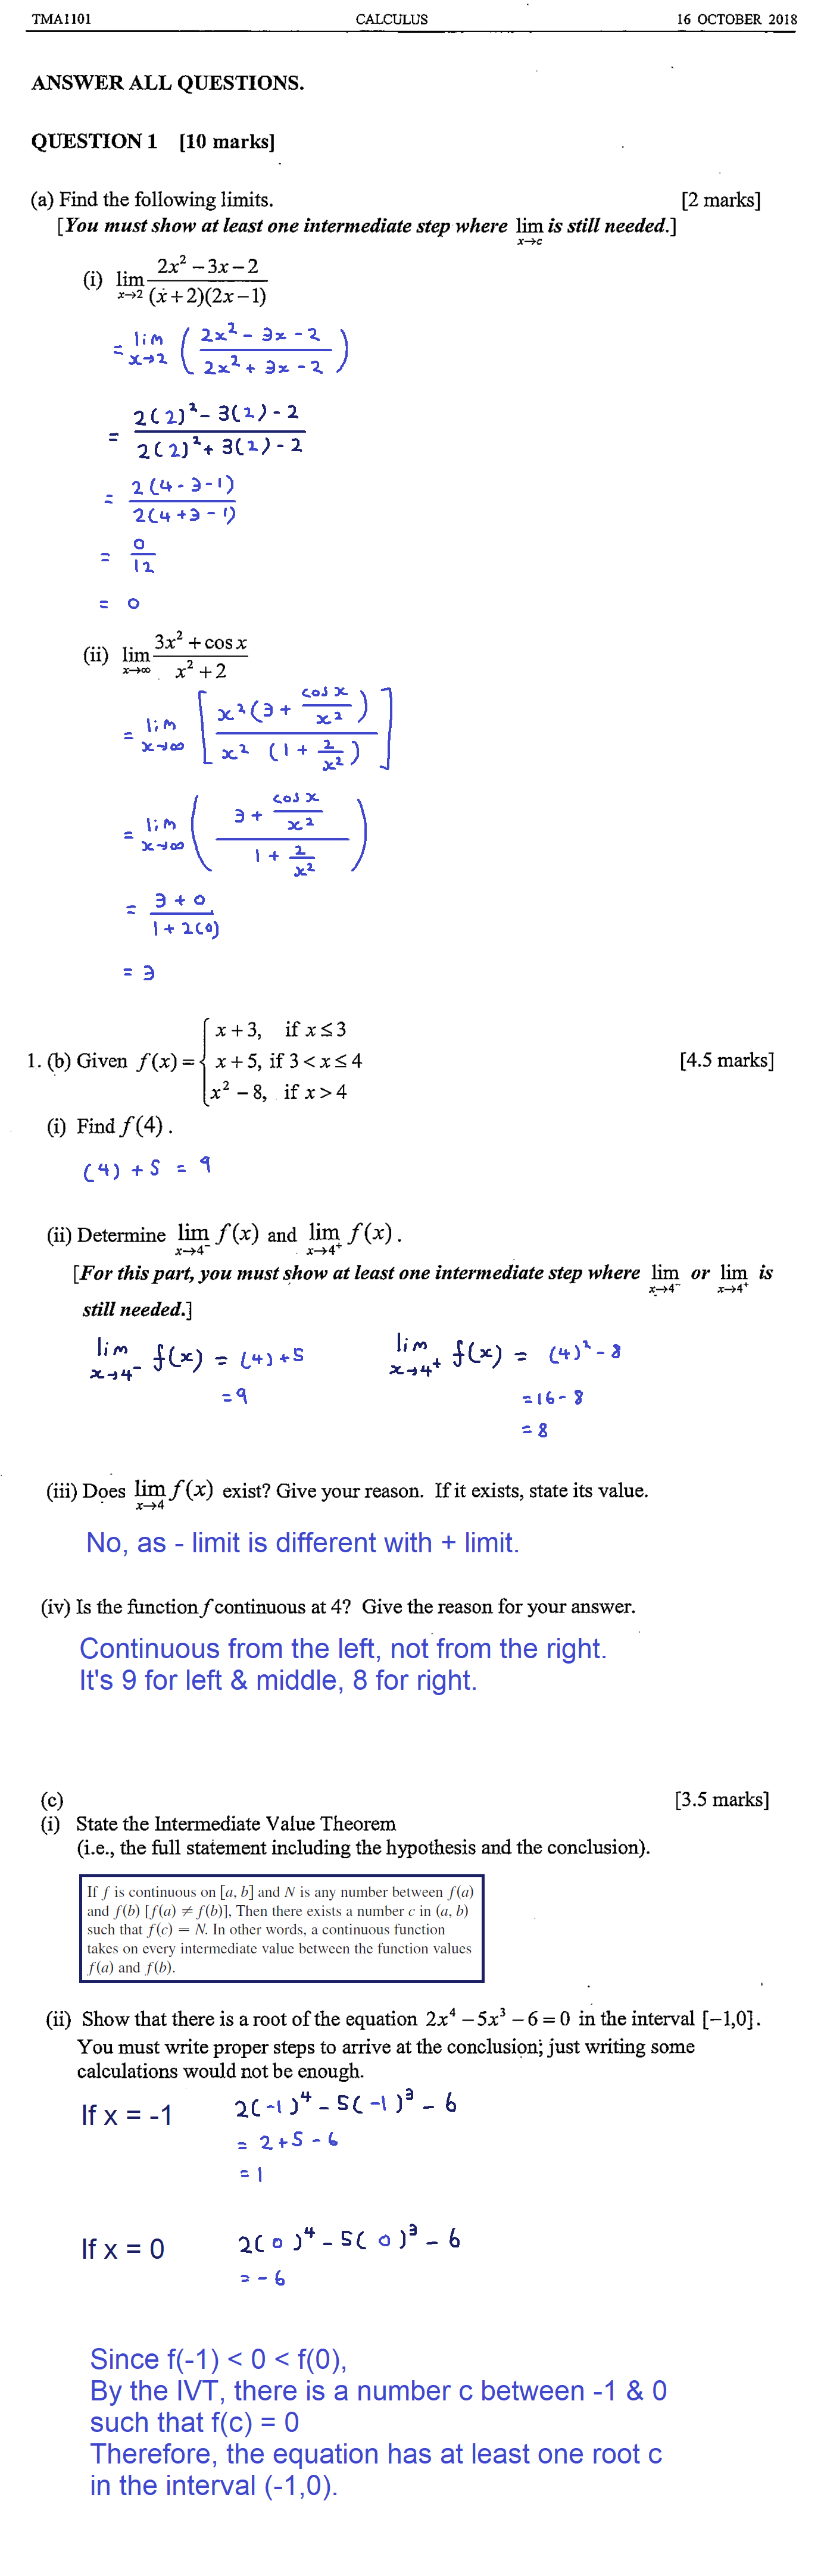 TMA1101 CALCULUS 16 OCTOBER 2018
ANSWER ALL QUESTIONS.
QUESTION 1 [10 marks]
(a) Find the following limits. [2 marks]
[You must show at least one intermediate step where lim x→c is still needed.]
(i) lim x→2 (2x² − 3x − 2)/((x + 2)(2x − 1))
= lim x→2 ((2x² - 3x - 2)/(2x² + 3x - 2))
= (2(2)² - 3(2) - 2)/(2(2)² + 3(2) - 2)
= (2(4 - 3 - 1))/(2(4 + 3 - 1))
= 0/12
= 0
(ii) lim x→∞ (3x² + cos x)/(x² + 2)
= lim x→∞ [(x²(3 + cos x/x²))/(x² (1 + 2/x²))]
= lim x→∞ ((3 + cos x/x²)/(1 + 2/x²))
= (3 + 0)/(1 + 2(0))
= 3
1. (b) Given f(x) = { x + 3, if x ≤ 3 [4.5 marks]
x + 5, if 3 < x ≤ 4
x² − 8, if x > 4
(i) Find f(4).
(4) + 5 = 9
(ii) Determine lim x→4⁻ f(x) and lim x→4⁺ f(x).
[For this part, you must show at least one intermediate step where lim x→4⁻ or lim x→4⁺ is
still needed.]
lim x→4⁻ f(x) = (4) + 5 lim x→4⁺ f(x) = (4)² - 8
= 9 = 16 - 8
= 8
(iii) Does lim x→4 f(x) exist? Give your reason. If it exists, state its value.
No, as - limit is different with + limit.
(iv) Is the function f continuous at 4? Give the reason for your answer.
Continuous from the left, not from the right.
It's 9 for left & middle, 8 for right.
(c) [3.5 marks]
(i) State the Intermediate Value Theorem
(i.e., the full statement including the hypothesis and the conclusion).
If f is continuous on [a, b] and N is any number between f(a)
and f(b) [f(a) ≠ f(b)], Then there exists a number c in (a, b)
such that f(c) = N. In other words, a continuous function
takes on every intermediate value between the function values
f(a) and f(b).
(ii) Show that there is a root of the equation 2x⁴ − 5x³ − 6 = 0 in the interval [−1,0].
You must write proper steps to arrive at the conclusion; just writing some
calculations would not be enough.
If x = -1 2(-1)⁴ - 5(-1)³ - 6
= 2 + 5 - 6
= 1
If x = 0 2(0)⁴ - 5(0)³ - 6
= - 6
Since f(-1) < 0 < f(0),
By the IVT, there is a number c between -1 & 0
such that f(c) = 0
Therefore, the equation has at least one root c
in the interval (-1,0).